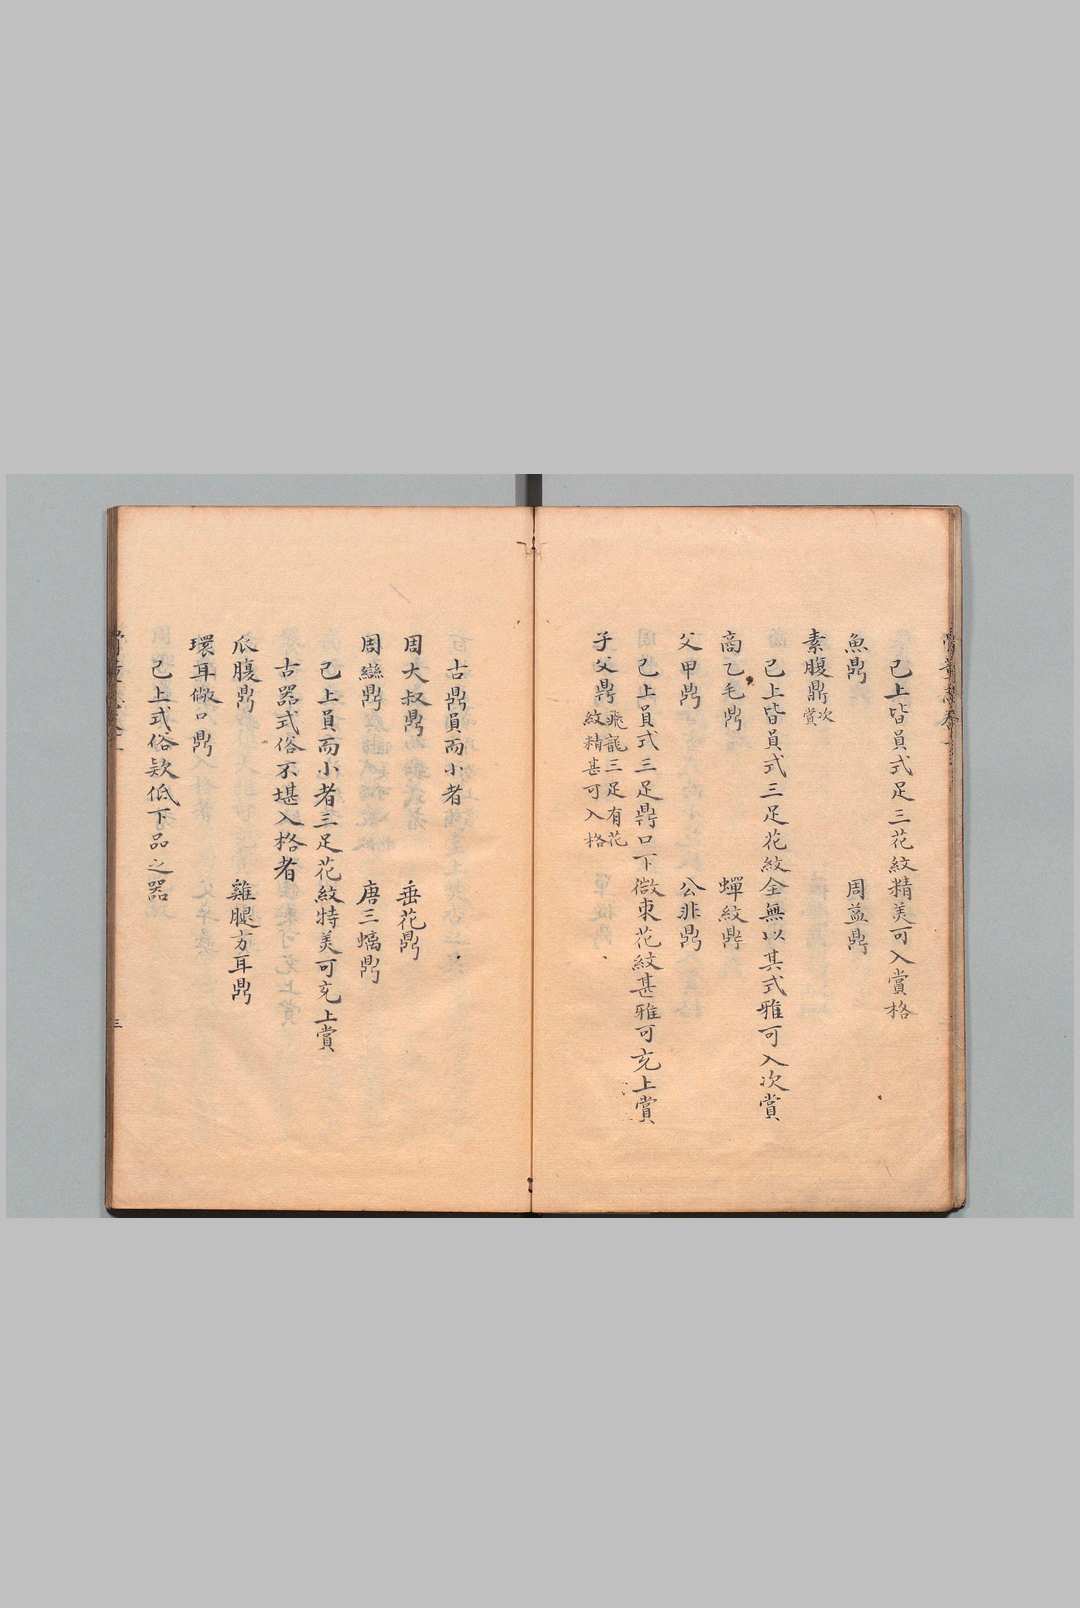 已上皆員式足三花紋精美可入賞格
魚鼎　周益鼎
素腹鼎次賞
已上皆員式三足花紋全無以其式雅可入次賞
高乙毛鼎　蟬紋鼎
父甲鼎　公非鼎
已上員式三足鼎口下微束花紋甚雅可充上賞
子父鼎飛龍三足有花紋精甚可入格
古鼎員而小者
周大叔鼎　垂花鼎
周䜌鼎　唐三螭鼎
已上員而小者三足花紋特美可充上賞
古器式俗不堪入格者
瓜腹鼎　雞腿方耳鼎
環耳儌口鼎
已上式俗欵低下品之器
三